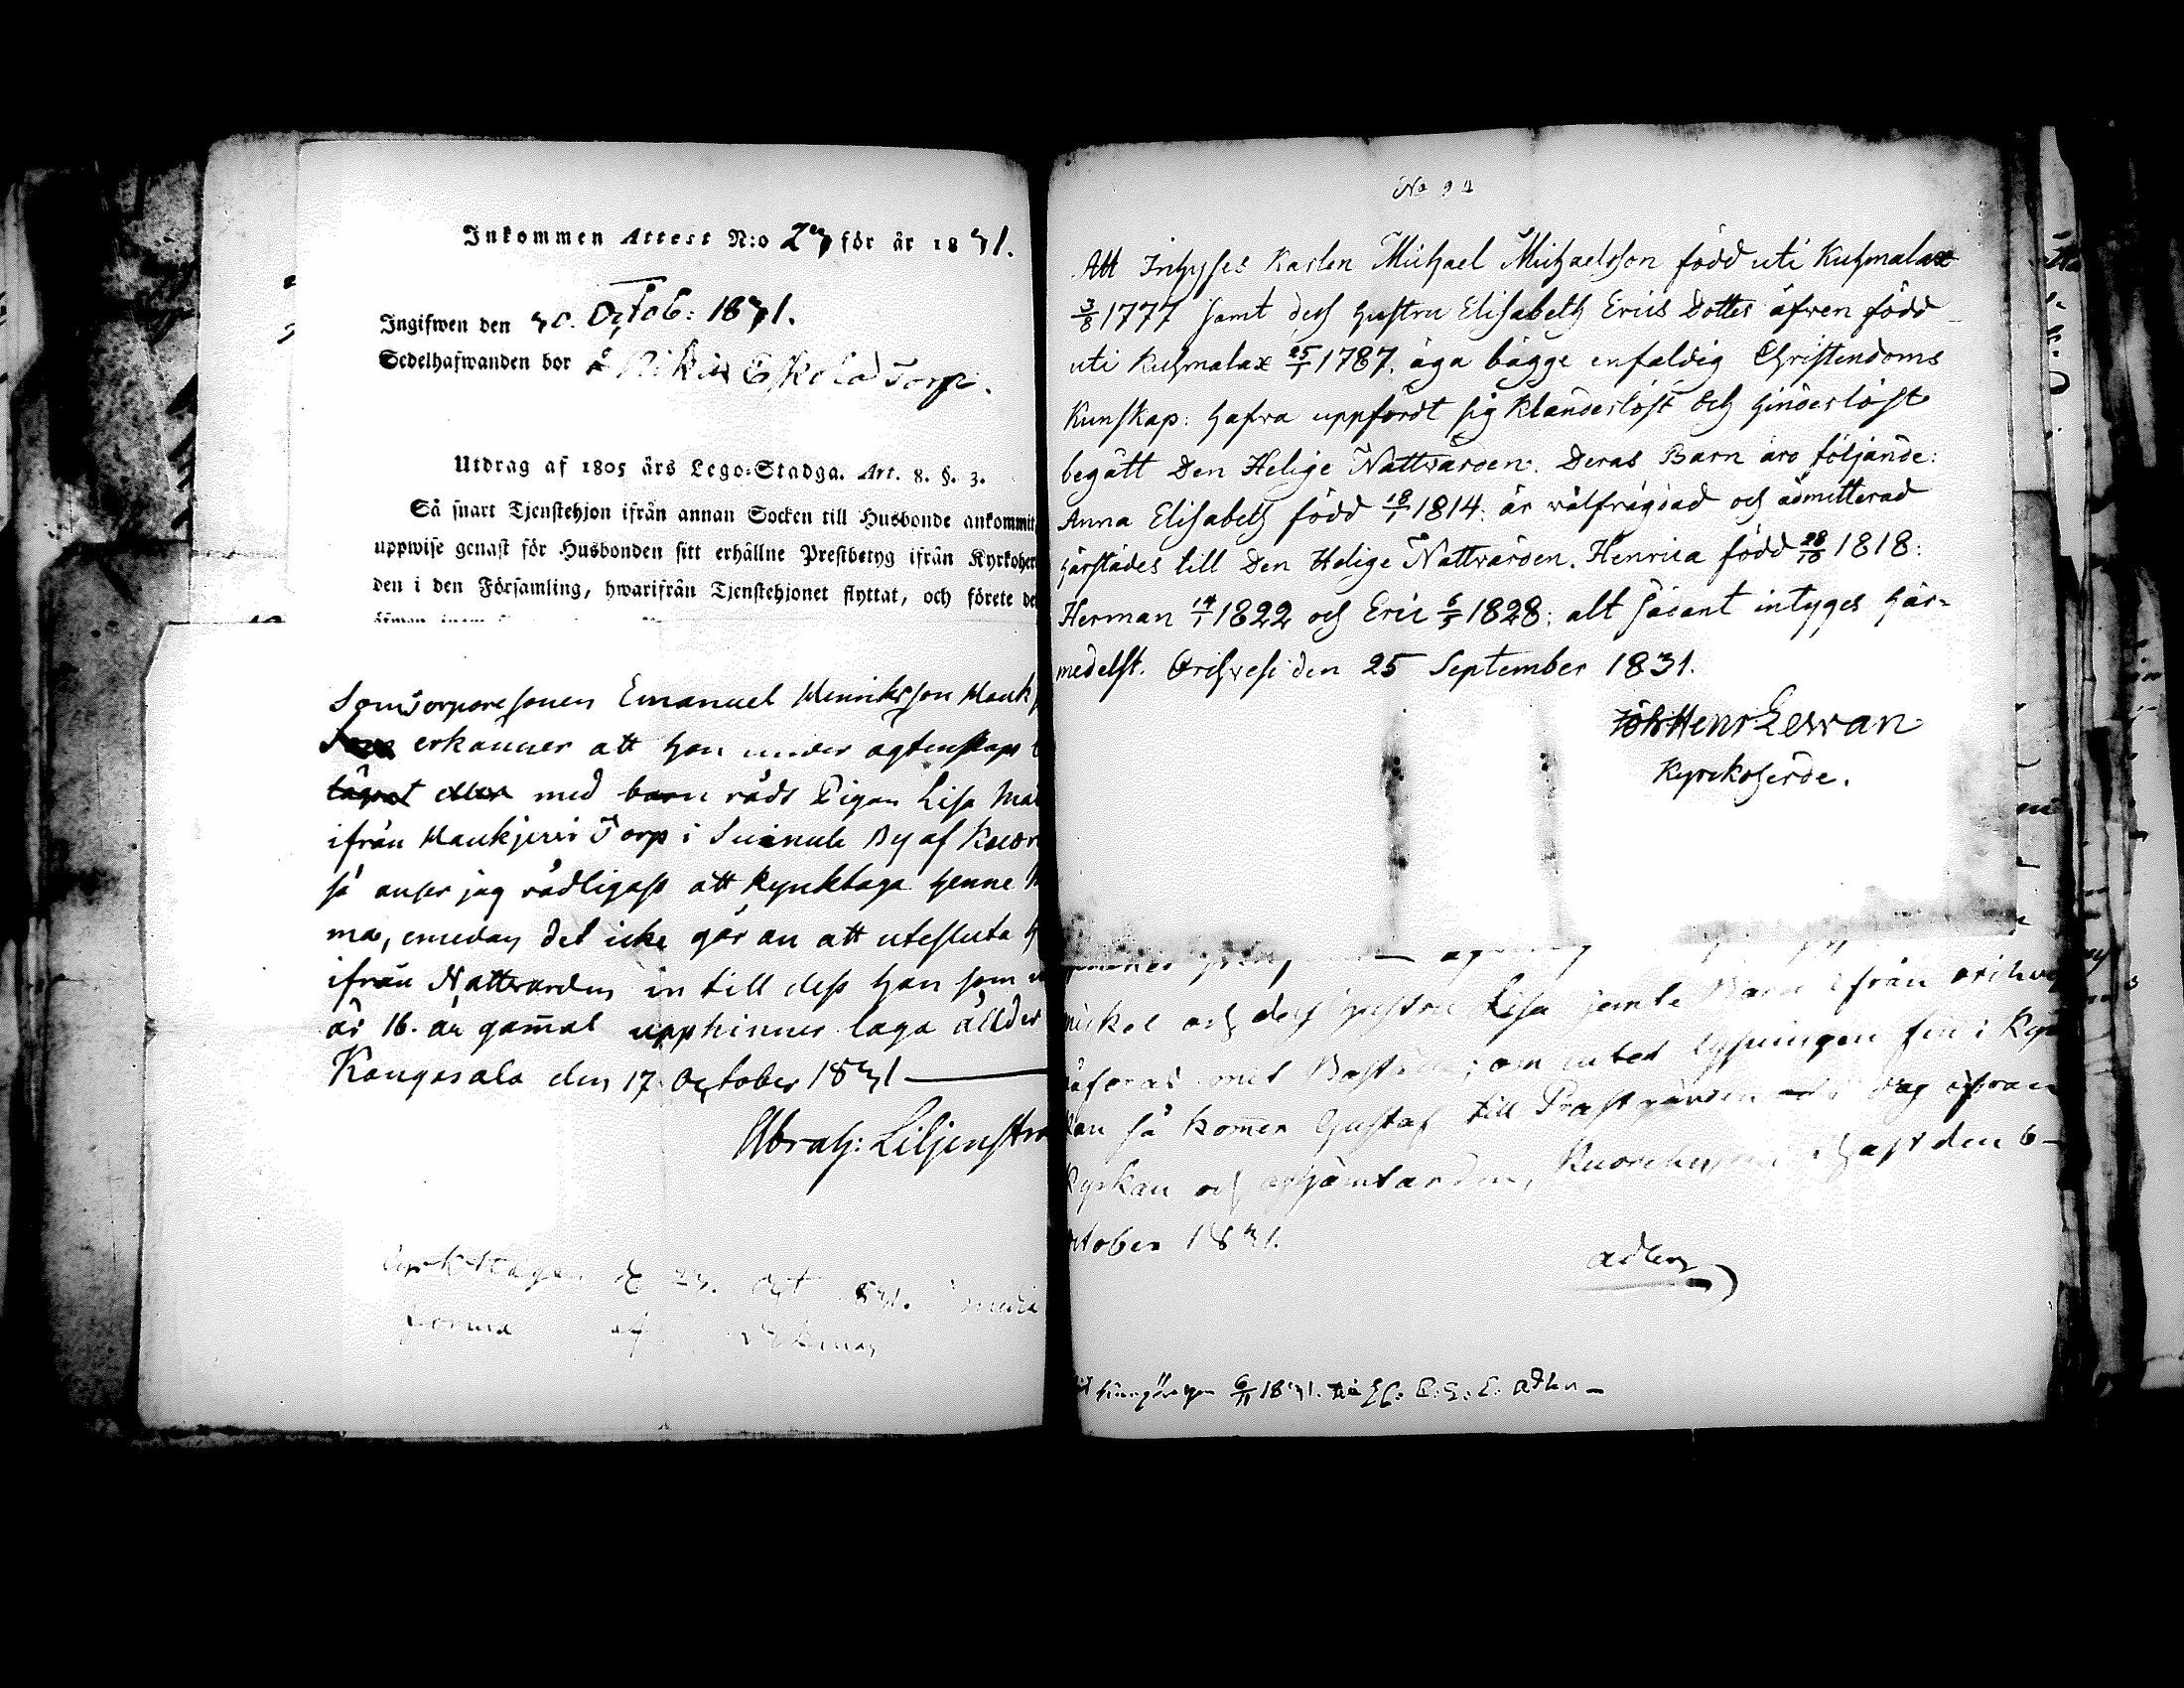 Inkommen Attest N:o 23 för år 1831.
Ingifwen den 30. Octob: 1831.
Sedelhafwanden bor å Eskola Torp.
Utdrag af 1805 års Lego-Stadga. Art. 8. §. 3.
Så snart Tjenstehjon ifrån annan Socken till Husbonde ankommit
uppwise genast för Husbonden sitt erhållne Prestbetyg ifrån Kyrkoher
den i den Församling, hwarifrån Tjenstehjonet flyttat, och förete de
Som Torparesonen Emanuel Henriksson Hauk
erkänner att han under ägtenskaps
med barn rådt Pigan Lisa Mat
ifrån Haukjerwi Torp i Suinula By af
så anser jag rådligast att kyrktaga henne
ma, emedan det icke går an att utesluta h
ifrån Nattvarden in till dess han som
är 16. år gam̄al upphinner laga ålder
Kangasala den 17 October 1831
Abrah: Liljenstr
d 23. Oct 1831.
forma af
No
Att Inhyses Karlen Michael Michaelsson född uti Kuhmalax
3/8 1777 samt dess hustru Elisabeth Erics Dotter äfven född
uti Kuhmalax 25/1 1787. äga bägge enfaldig Christendoms
Kunskap: hafva uppfördt sig klanderlöst och hinderlöst
begått Den Helige Nattvarden. Deras Barn äro följande:
Anna Elisabeth född 18/1 1814: är välfrägdad och admitterad
härstädes till Den Helige Nattvarden. Henrica född 28/10 1818:
Herman 14/1 1822 och Eric 6/5 1828: alt sådant intyges här=
medelst. Orihvesi den 25 September 1831.
Joh Henr Lewan
Kyrckoherde.
Mickel och dess hustru Lisa jemte Barn ifrån
om intet lysningen sin i Kyr
kan så kom̄er Gustaf till Prästgården i dag ifrån
Kyrkan och den 6
October 1831.
Adlen
6/11 1831. Adlen